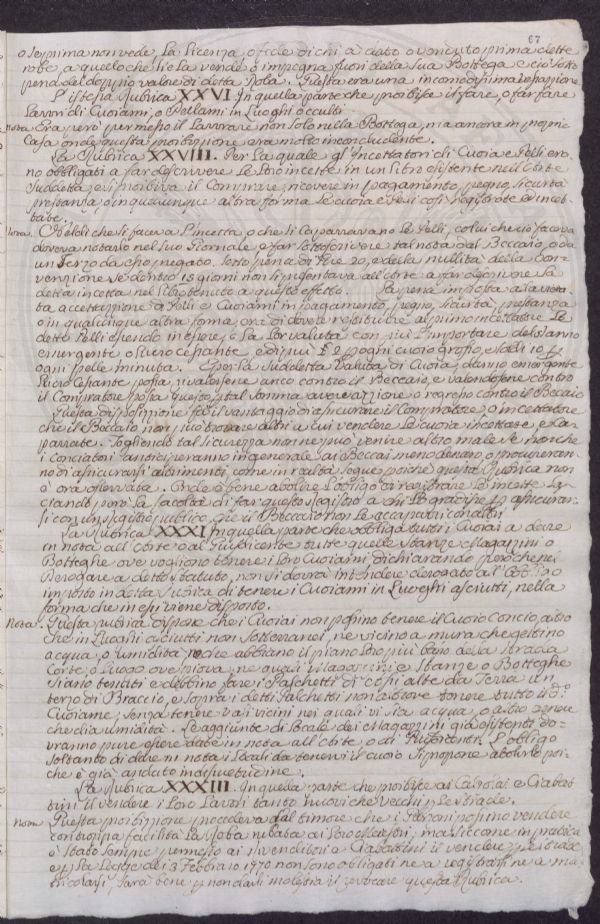 67
o se prima non vede, la licenza, o fede di chi à dato o venduto prima dette
robe a quelo che lie la vende o impegna fuori della sua Bottega e ciò sotto
pena del doppio valore di detta Robba. Questa era una incomodissima vessazione
L'istessa Rubrica XXVI. In quella parte che proibisce il fare, o far fare
Lavori di Cuoiami, o Pellami in Luoghi occulti
Nota Era però permesso il lavorare non solo nella Bottega, ma ancora in propria
Casa onde questa proibizione era molto inconcludente.
La Rubrica XXVIII. Per la quale gl'Incettatori di Cuoia e Pelli era-
no obbligati a far descrivere le loro incette in un libro esistente nell'Arte
suddetta, e si proibiva il Comprare, ricevere in pagamento, pegno, sicurtà
prestanza, o in qualunque altra forma le cuoia e Pelli così registrate e incet-
tate.
Nota. Quelli che si faceva l'incetta, o che si caparravano le Pelli, colui che ciò faceva
doveva notarlo nel suo Giornale e far sottoscrivere tal nota dal Beccaio, o da
un Terzo da esso pregato, sotto pena di Lire 20, e della nullità della Con-
venzione se dentro 15 giorni non si presentava all'Arte a far descrivere la
detta incetta nel libro tenuto a questo effetto. La pena imposta alla vieta-
ta accettazione di Pelli e Cuoiami in pagamento, pegno, sicurtà, prestanza
o in qualunque altra forma, era di dovere restituire al primo incettatore le
dette Pelli essendo in essere, o la lor valuta con più l'importare del danno
emergente o lucro cessante, e di più £ 2 per ogni cuoio grosso, e soldi 10 per
ogni pelle minuta. E per la suddetta Valuta di Cuoia, danno emergente
lucro Cessante possa rivalersene anco contro il Beccaio, e valendosene contro
il Compratore possa questo per tal somma aver azione o regresso contro il Beccaio
Questa disposizione fa il vantaggio di assicurare il Compratore, o incettatore
che il Beccaio non può trovare altri a cui vendere le cuoia incettate e Ca-
parrate. Togliendo tal sicurezza non ne può venire altro male se non che
i Conciatori anticiperanno in generale ai Beccai meno denaro, o procureran-
no di assicurarsi altrimenti, come in realtà segue, poiché questa Rubrica non
è ora osservata. Onde è bene abolire l'obbligo di registrare le incette la-
sciando però la facoltà di far questo registro a chi lo gradisce per assicurar-
si con un registro pubblico, che il Beccaio non le accaparri con altri
La Rubrica XXXI. In quella parte che obbliga tutti i Cuoiai a dare
in nota all'Arte o al Giusdicente tutte quelle stanze, Magazzini o
Botteghe ove vogliono tenere i loro Cuoiami dichiarando però che nel
derogare a detto statuto, non si dovrà intendere derogato all'Obbligo
imposto in detta Rubrica di tenere i Cuoiami in Luoghi asciutti, nella
forma che in essa viene disposto.
Nota. Questa rubrica dispone che i Cuoiai non possino tenere il Cuoio Concio, altro
che in Luoghi asciutti non sotterranei, ne vicino a mura che gettino
acqua, o umidità, ne che abbiano il piano loro più basso della strada
Corte, o Luogo ove piova, ne quali Magazzini e Stanze o Botteghe
siano tenuti e debbino fare i Palchetti di Copi alte da Terra un
terzo di Braccio, e sopra i detti Palchetti non altrove tenere tutto il d.o
Cuoiame, senza tenere vasi vicini nei quali vi sia acqua, o altro genere
che dia umidità. Le aggiunte di scale dei Magazzini già esistenti do-
vranno pure essere date in nota all'Arte o al Giusdicente. L'obbligo
soltanto di dare in nota i locali da tenervi il cuoio si propone abolirlo poi-
che è già andato in disuetudine.
La Rubrica XXXIII. In quella parte che proibisce ai Calzolai e Ciabat-
tini il vendere i loro Lavori tanto nuovi che vecchi per le strade.
Nota. Questa proibizione procedeva dal timore che i Garzoni possino vendere
con troppa facilità la roba rubata ai loro Maestri, ma siccome in pratica
è stato sempre permesso ai rivenditori e Ciabattini il vendere per le strade
e per la Legge dei 3 Febbraio 1770 non sono obbligati ne a registrarsi ne a ma-
tricolarsi, sarà bene per non darli molestia il revocare questa Rubrica.